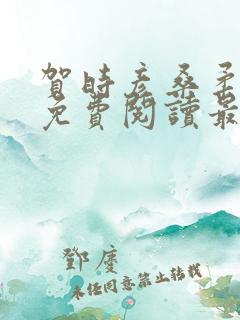 賀時彥桑柔
免費閱讀最
鄧慶
未經同意禁止轉載